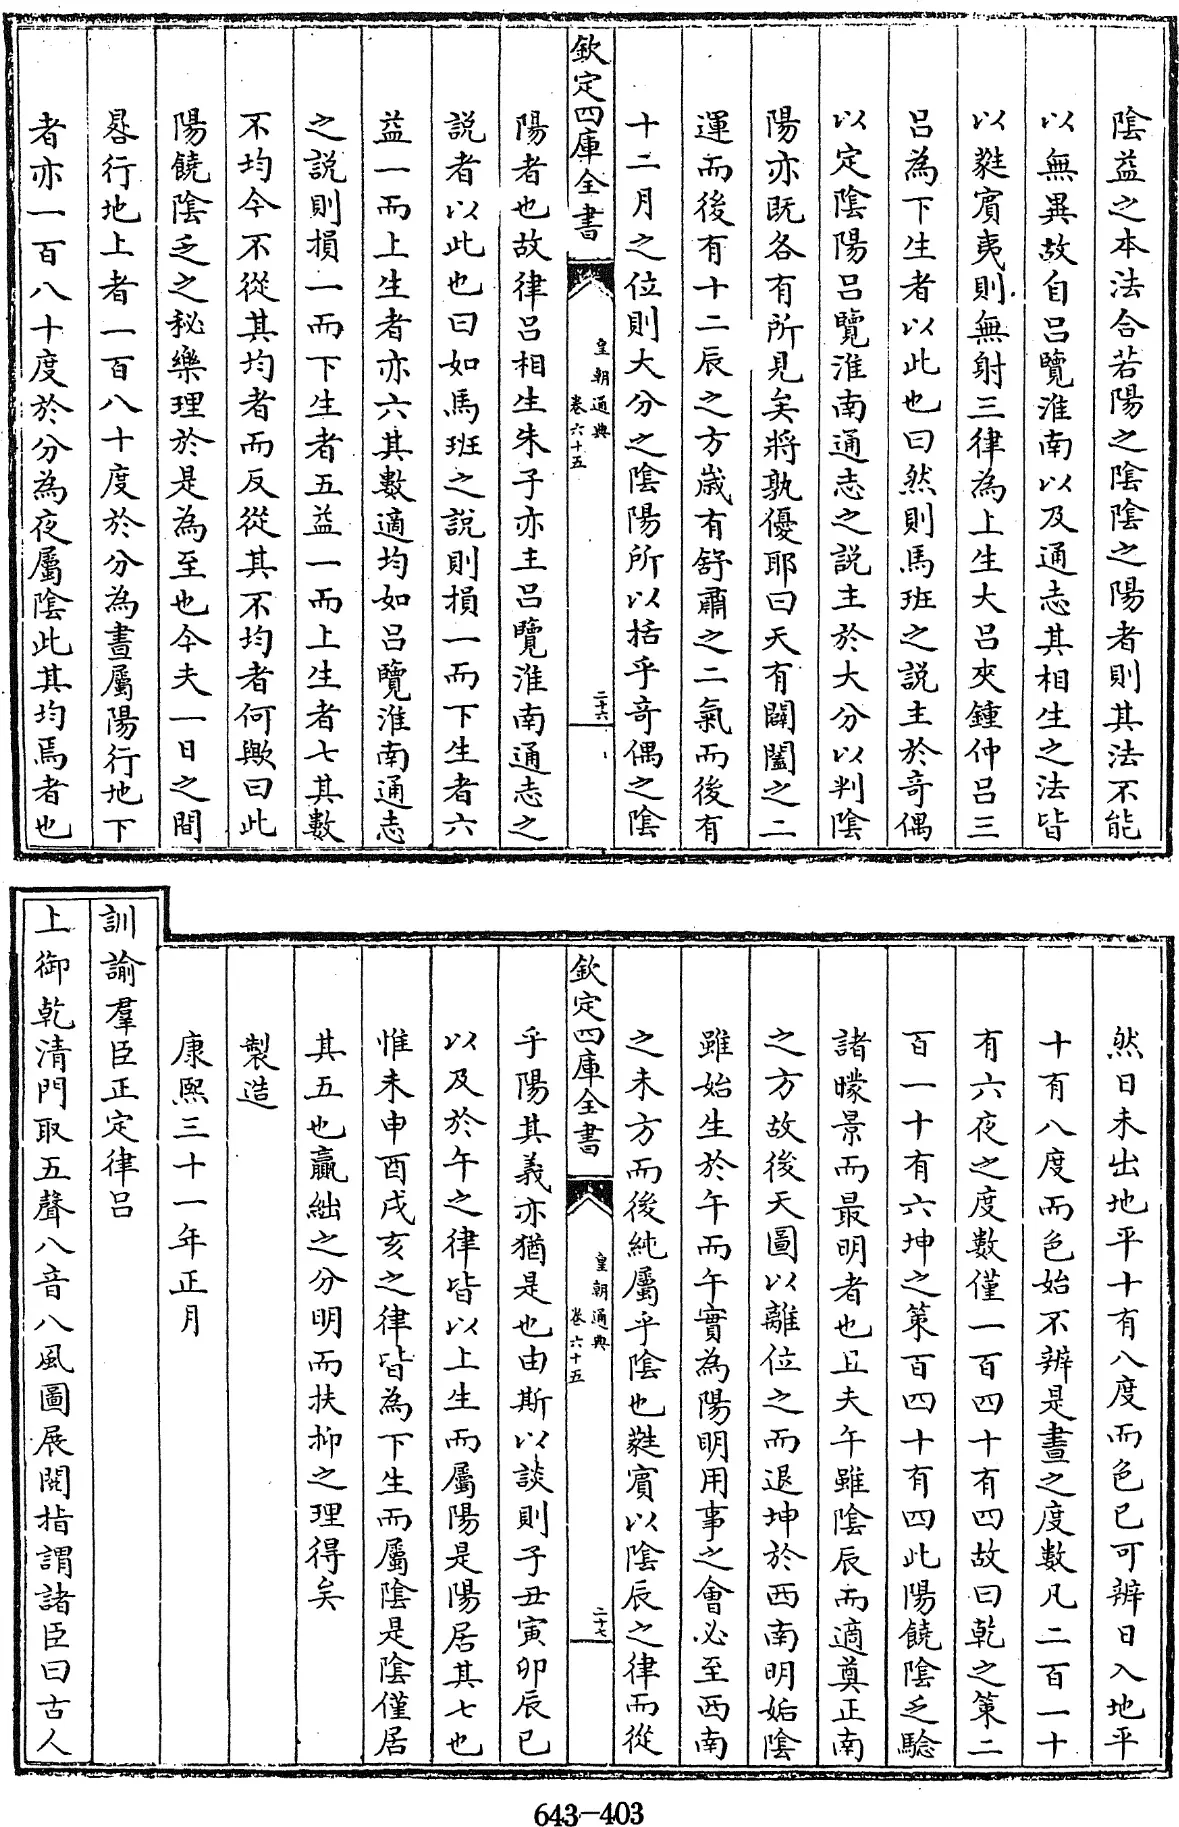 陰益之本法合若陽之陰陰之陽者則其法不能
以無異故自呂覽淮南以及通志其相生之法皆
以蕤賓夷則無射三律為上生大呂夾鍾仲呂三
呂為下生者以此也曰然則馬班之説主於奇偶
以定陰陽呂覽淮南通志之説主於大分以判陰
陽亦既各有所見矣將孰優耶曰天有闢闔之二
運而後有十二辰之方歲有舒肅之二氣而後有
十二月之位則大分之陰陽所以括乎奇偶之陰
欽定四庫全書
皇朝通典
卷六十五
二十六
陽者也故律呂相生朱子亦主呂覽淮南通志之
説者以此也曰如馬班之説則損一而下生者六
益一而上生者亦六其數適均如呂覽淮南通志
之説則損一而下生者五益一而上生者七其數
不均今不從其均者而反從其不均者何歟曰此
陽饒陰乏之秘樂理於是為至也今夫一日之間
晷行地上者一百八十度於分為晝屬陽行地下
者亦一百八十度於分為夜屬陰此其均焉者也
然日未出地平十有八度而色已可辨日入地平
十有八度而色始不辨是晝之度數凡二百一十
有六夜之度數僅一百四十有四故曰乾之策二
百一十有六坤之策百四十有四此陽饒陰乏騐
諸曚景而最明者也且夫午雖陰辰而適奠正南
之方故後天圖以離位之而退坤於西南明姤陰
雖始生於午而午實為陽明用事之會必至西南
之未方而後純屬乎陰也蕤賓以陰辰之律而從
欽定四庫全書
皇朝通典
卷六十五
二十七
乎陽其義亦猶是也由斯以談則子丑寅卯辰巳
以及於午之律皆以上生而屬陽是陽居其七也
惟未申酉戌亥之律皆為下生而屬陰是陰僅居
其五也贏絀之分明而扶抑之理得矣
製造
康熙三十一年正月
訓諭羣臣正定律呂
上御乾清門取五聲八音八風圖展閱指謂諸臣曰古人
643-403